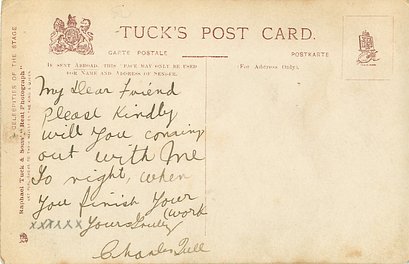 TUCK'S POST CARD.
CARTE POSTALE
POSTKARTE
IF SENT ABROAD, THIS SPACE MAY ONLY BE USED
FOR NAME AND ADDRESS OF SENDER.
(For Address Only).
My Dear Friend
Please Kindly
will you coming
out with Me
To night, when
You finish Your
xxxxxx Yours truly (work
Charles Tull
CELEBRITIES OF THE STAGE
Raphael Tuck & Sons' "Real Photograph"